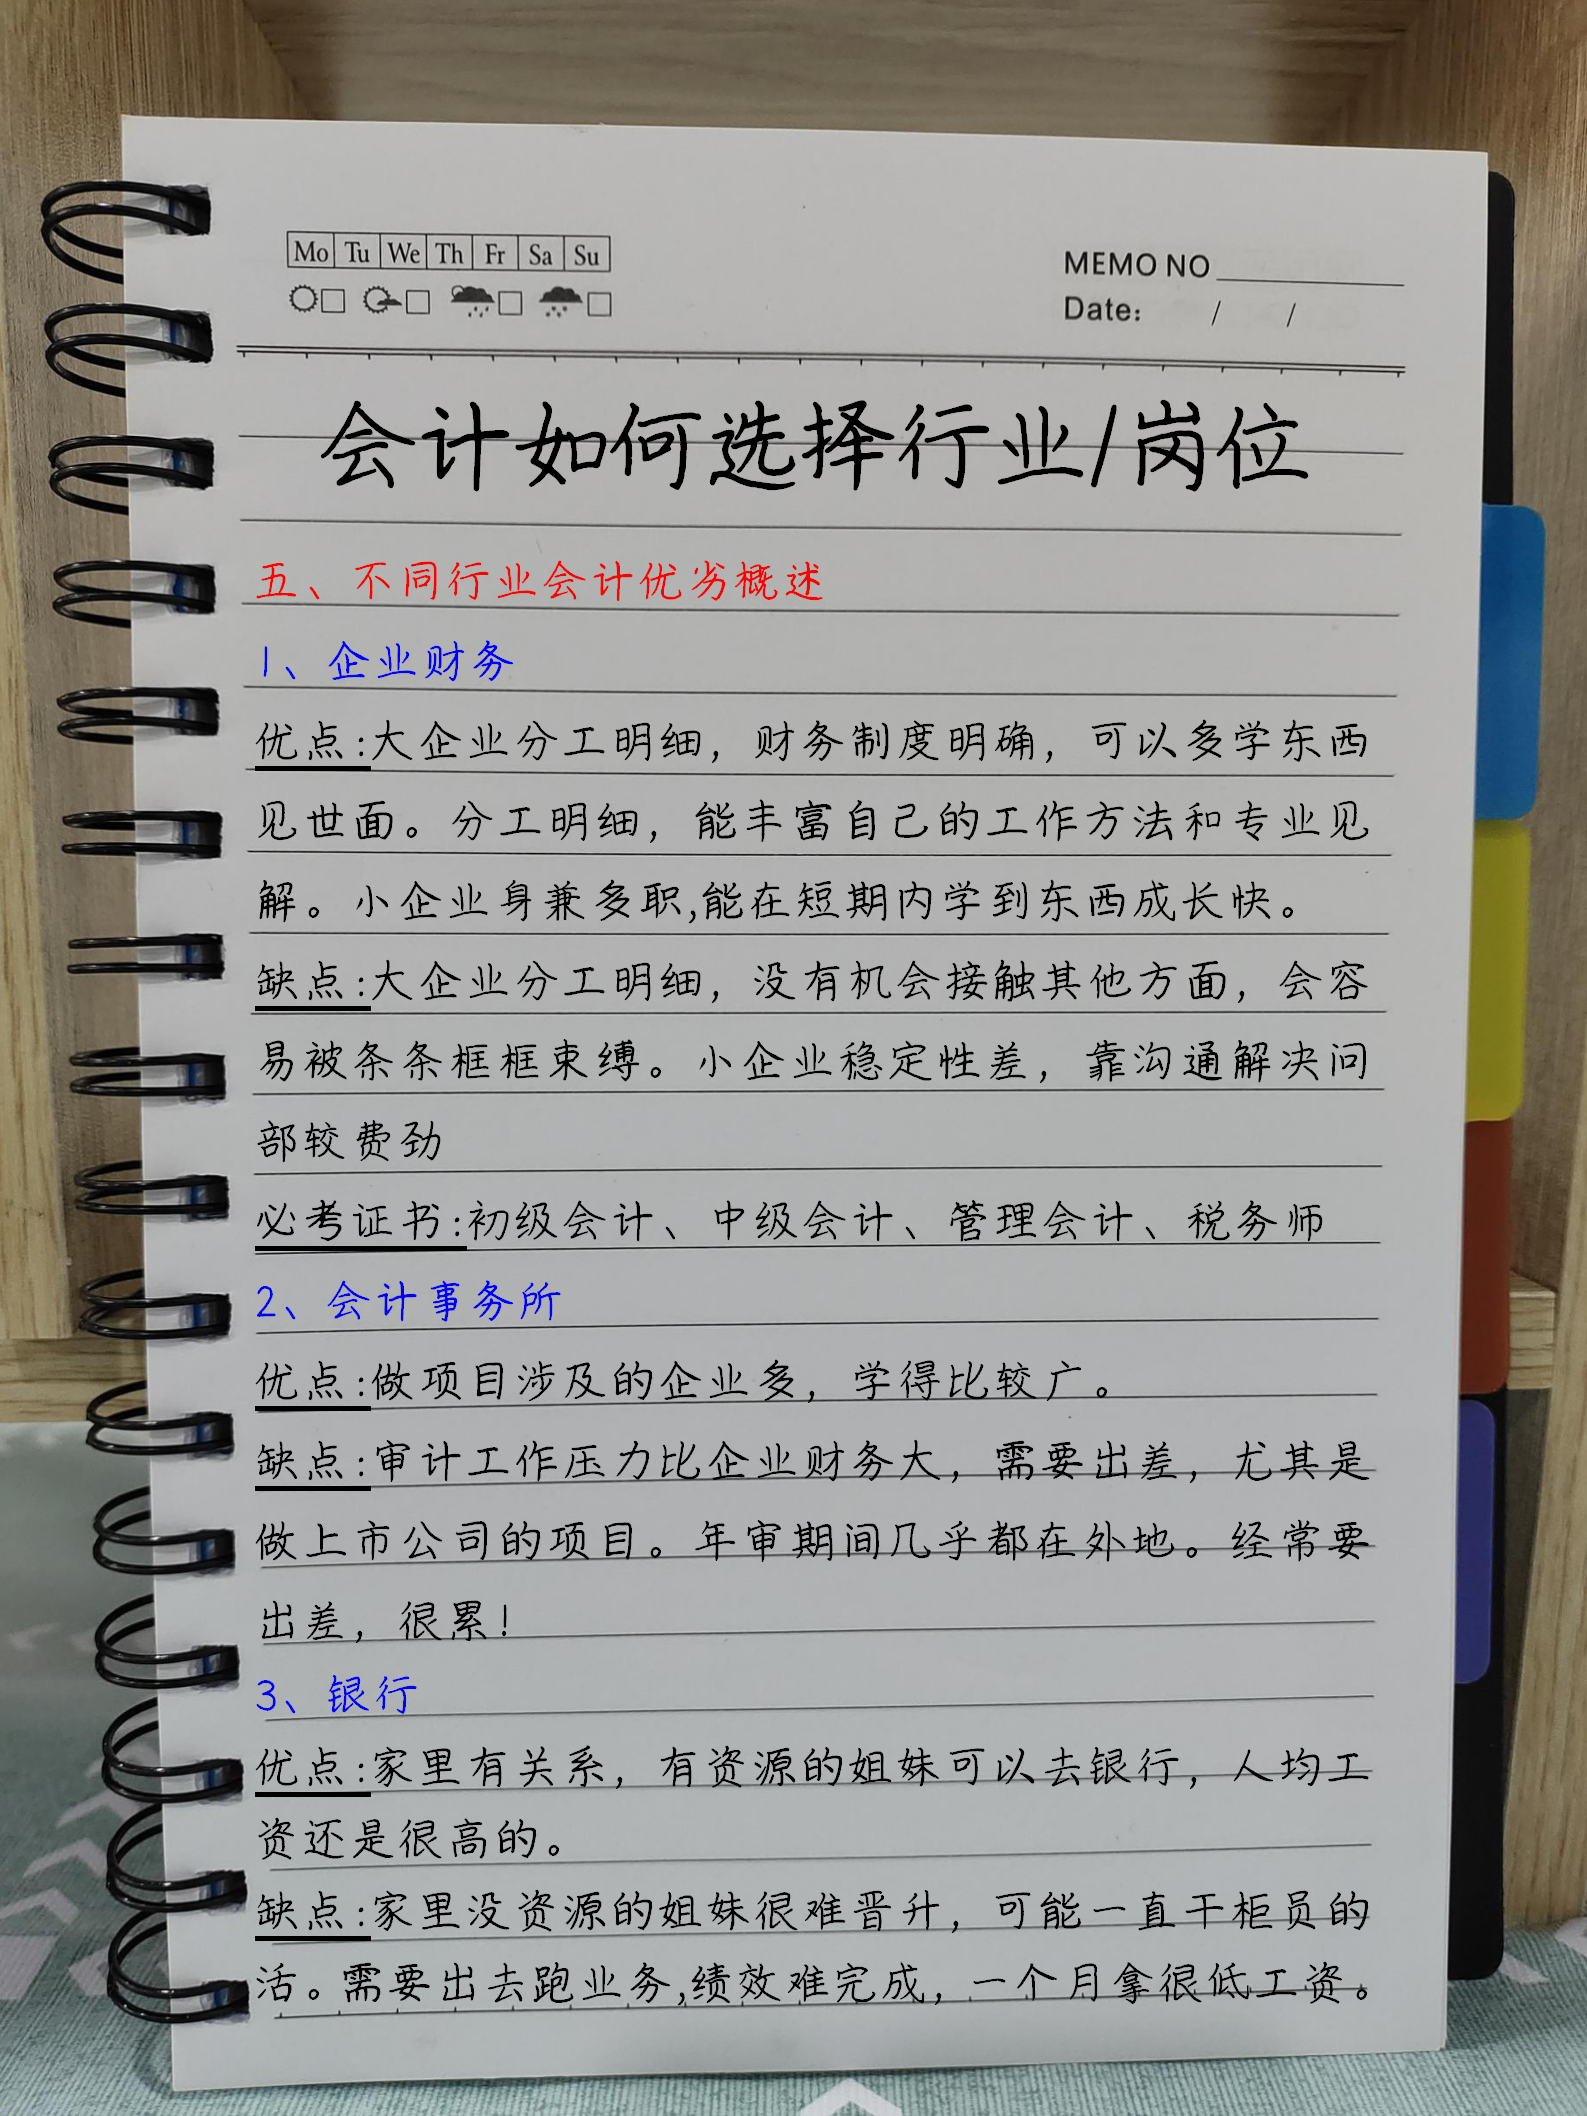 Mo Tu We Th Fr Sa Su
MEMO NO
Date: / /
会计如何选择行业/岗位
五、不同行业会计优劣概述
1、企业财务
优点:大企业分工明细，财务制度明确，可以多学东西
见世面。分工明细，能丰富自己的工作方法和专业见
解。小企业身兼多职,能在短期内学到东西成长快。
缺点:大企业分工明细，没有机会接触其他方面，会容
易被条条框框束缚。小企业稳定性差，靠沟通解决问
部较费劲
必考证书:初级会计、中级会计、管理会计、税务师
2、会计事务所
优点:做项目涉及的企业多，学得比较广。
缺点:审计工作压力比企业财务大，需要出差，尤其是
做上市公司的项目。年审期间几乎都在外地。经常要
出差，很累!
3、银行
优点:家里有关系，有资源的姐妹可以去银行，人均工
资还是很高的。
缺点:家里没资源的姐妹很难晋升，可能一直干柜员的
活。需要出去跑业务,绩效难完成，一个月拿很低工资。